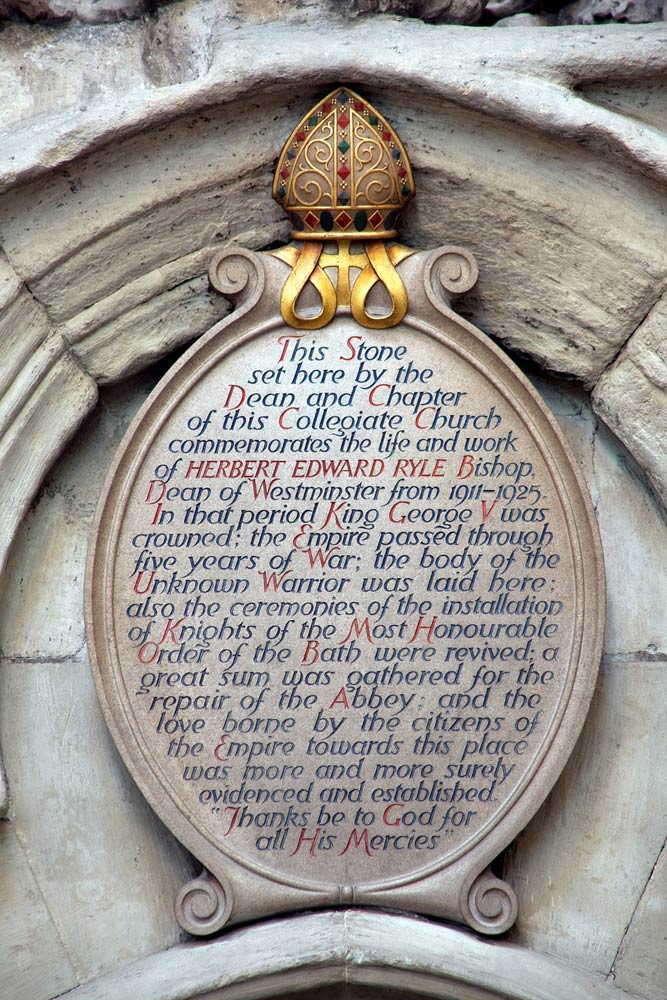 This Stone
set here by the
Dean and Chapter
of this Collegiate Church
commemorates the life and work
of HERBERT EDWARD RYLE Bishop,
Dean of Westminster from 1911-1925.
In that period King George V was
crowned; the Empire passed through
five years of War; the body of the
Unknown Warrior was laid here;
also the ceremonies of the installation
of Knights of the Most Honourable
Order of the Bath were revived; a
great sum was gathered for the
repair of the Abbey; and the
love borne by the citizens of
the Empire towards this place
was more and more surely
evidenced and established.
"Thanks be to God for
all His Mercies"